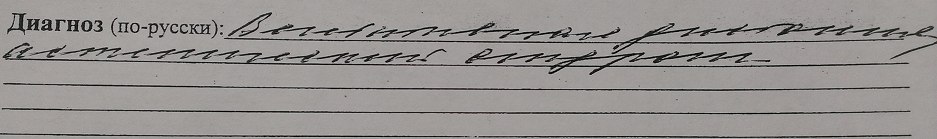 Диагноз (по-русски): Вегетативная дистония,
астенический синдром